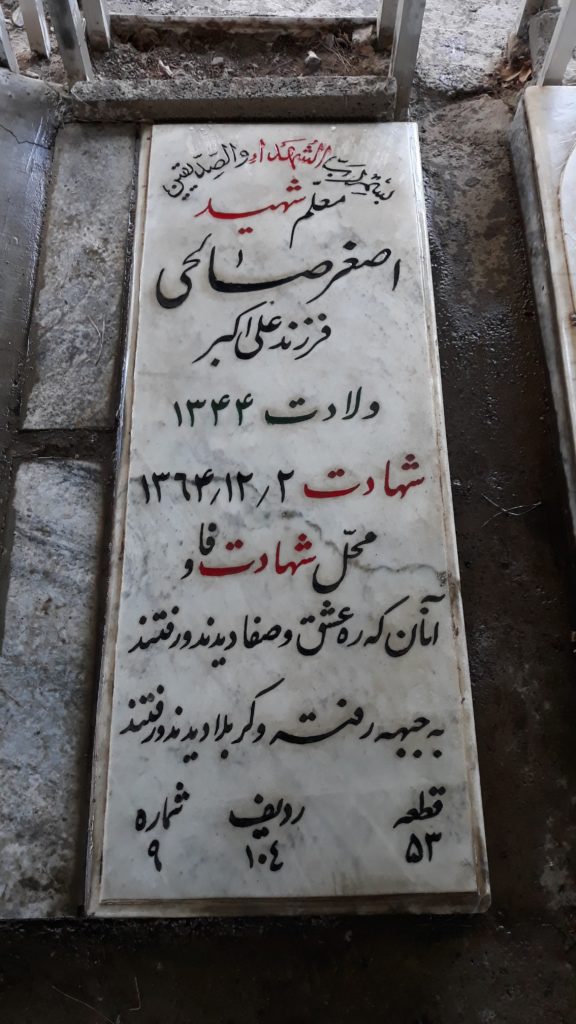 بسم رب الشهداء والصدیقین
معلم شهید
اصغر صالحی
فرزند علی اکبر
ولادت ۱۳۴۴
شهادت ۱۳۶۴٫۱۲٫۲
محلّ شهادت فاو
آنان که ره عشق و صفا دیدند و رفتند
به جبهه رفته و کربلا دیدند و رفتند
قطعه ردیف شماره
۵۳ ۱۰٤ ۹